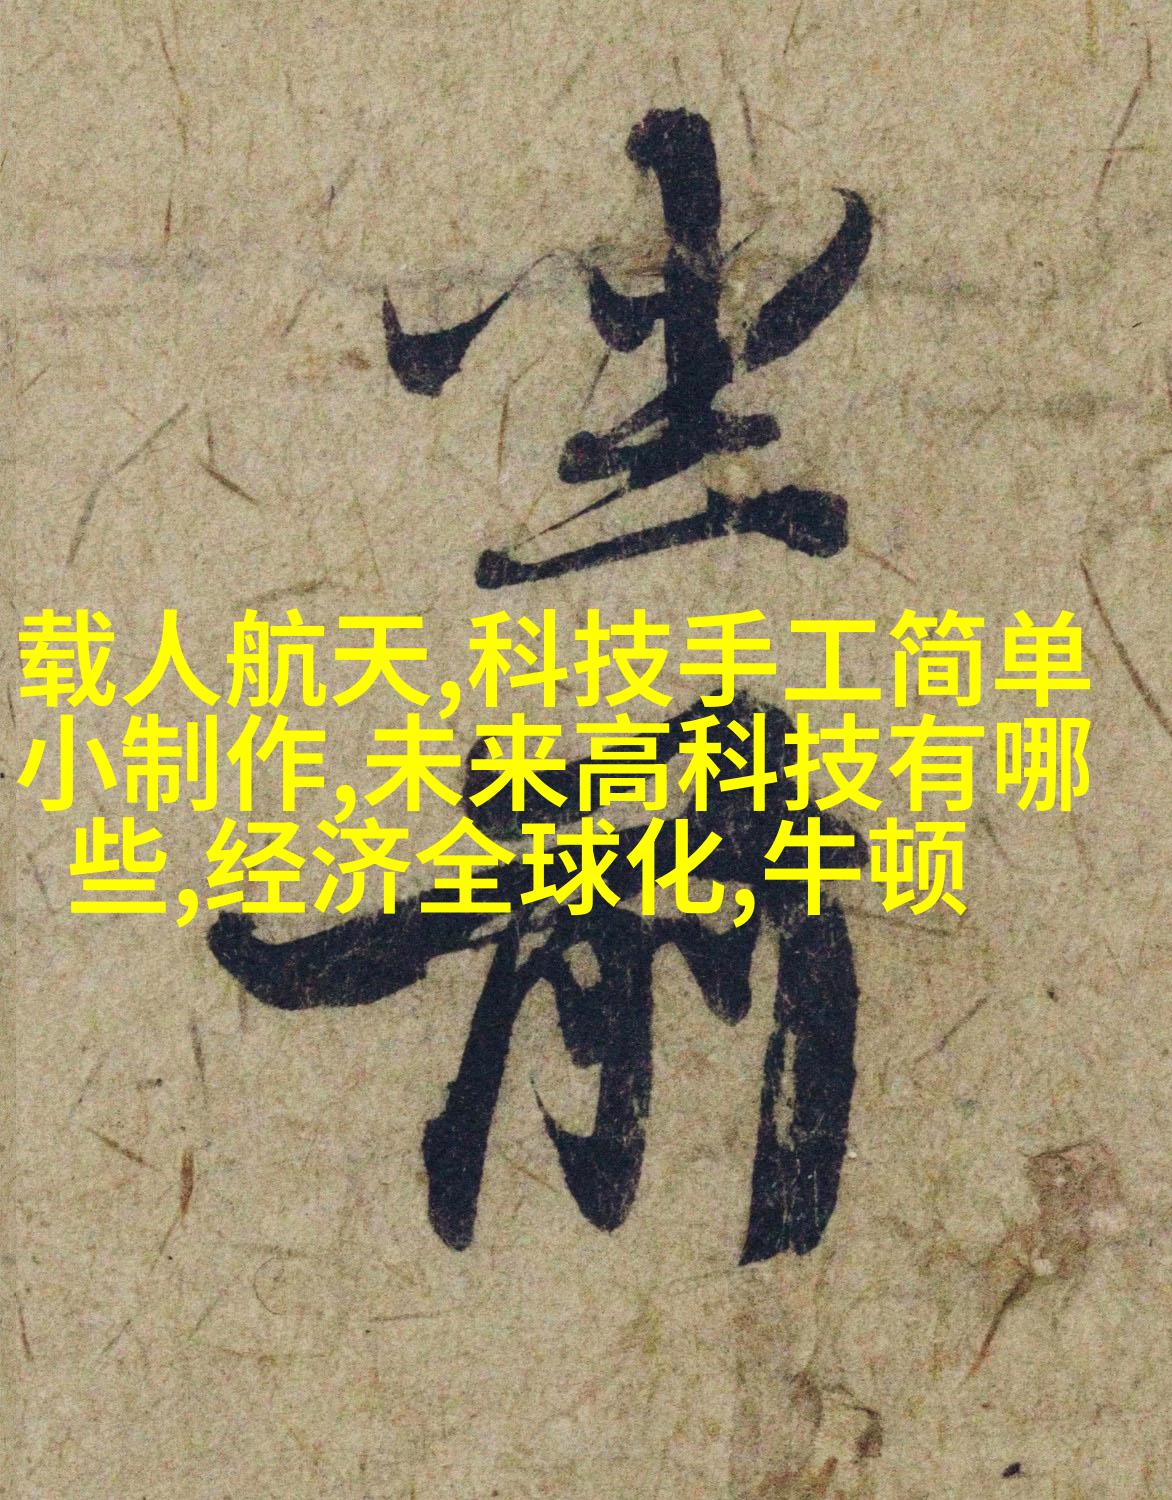 载人航天,科技手工简单
小制作,未来高科技有哪
些,经济全球化,牛顿